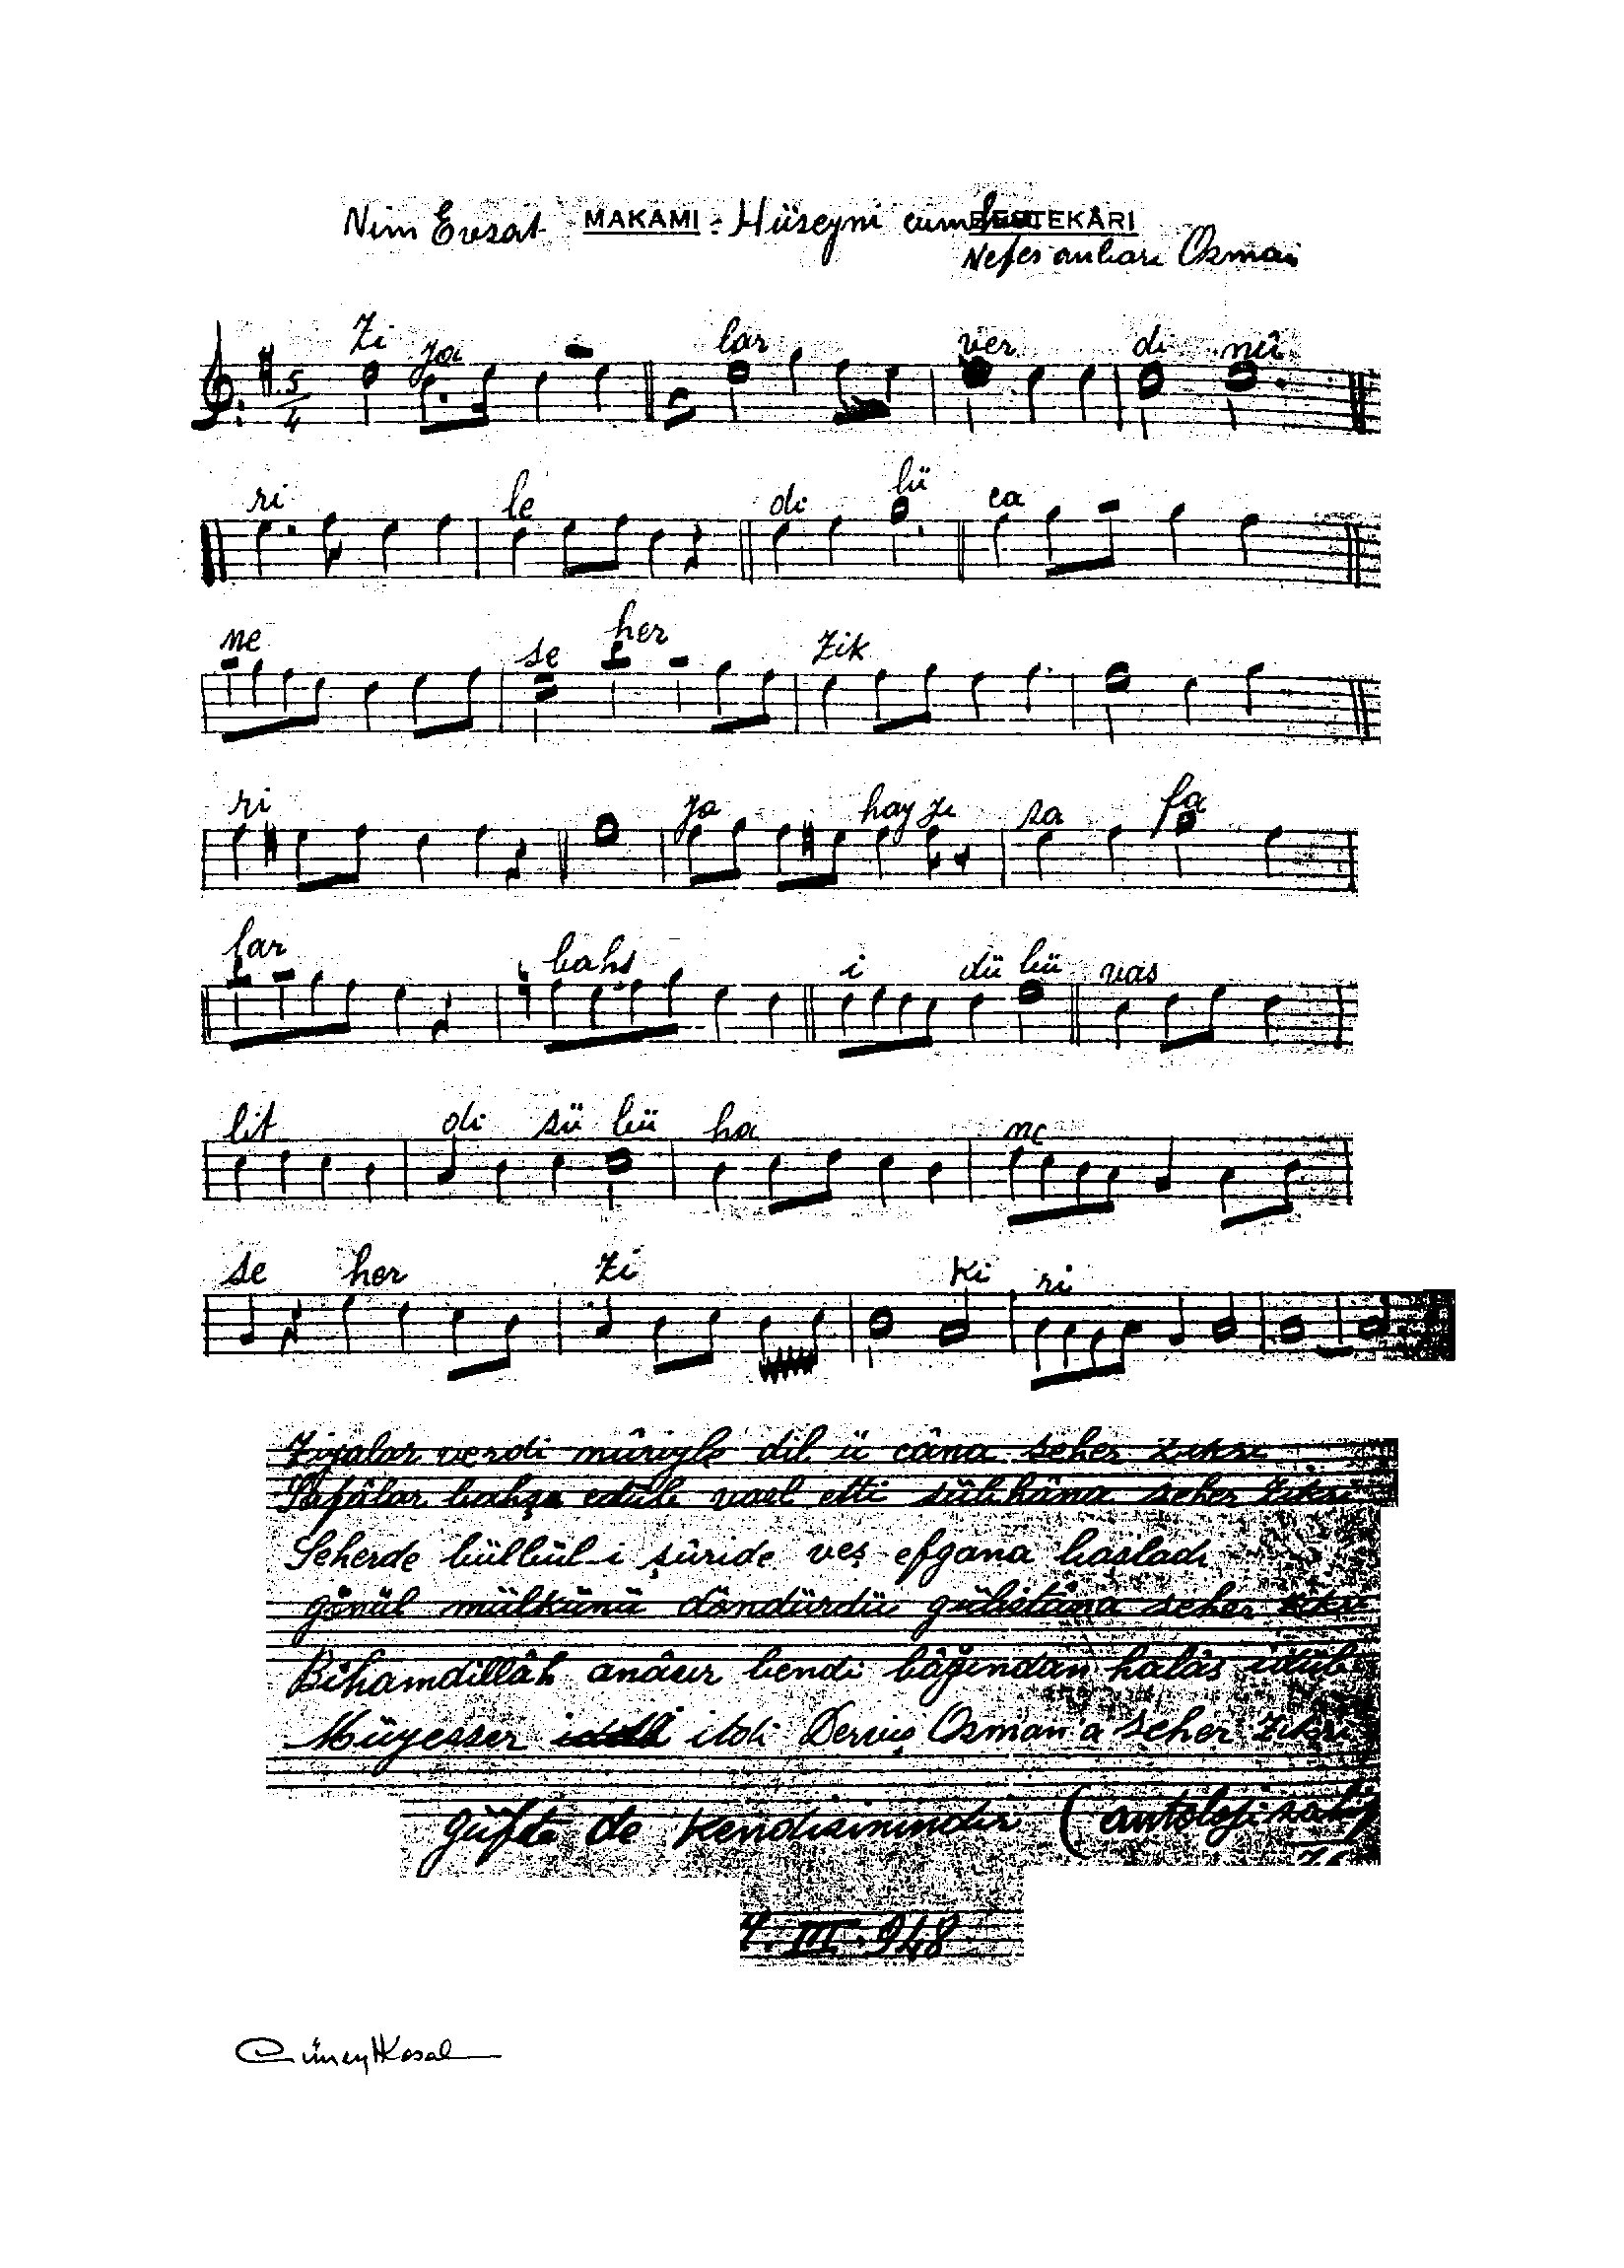 Nim Evsat MAKAMI : Hüseyni cumhur BESTEKÂRI
Nefes anbarı Osman
5/4
Zi ya lar ver di nû
ri le di lü ca
ne se her Zik
ri ya hay yi sa fa
lar bahs i dü bü vas
lit di sü bü ha ne
se her Zi ki ri
Ziyalar verdi nûriyle dil ü câna seher zikri
Safâlar bahşa edüb vasl etti sübhâna seher zikri
Seherde bülbül-i şûride veş efgana basladı
gönül mülkünü döndürdü gülistâna seher zikri
Bihamdillâh anâsır bendi bâğından halâs idüb
Müyesser itdi Derviş Osman'a seher zikri
güfte de kendisinindir (antoloji
4.III.948
Cüneyd Kosal